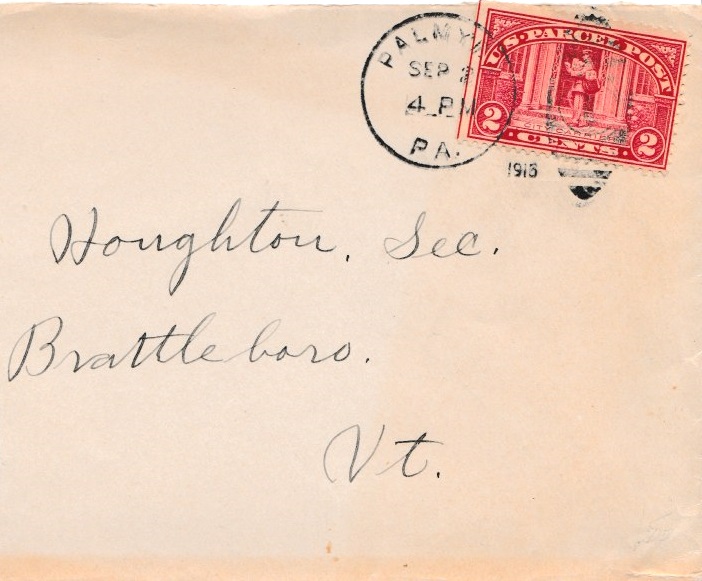 PALMYRA
SEP
4 PM
PA.
1913
U.S. PARCEL POST
CITY CARRIER
2 CENTS 2
Houghton, Sec.
Brattleboro.
Vt.